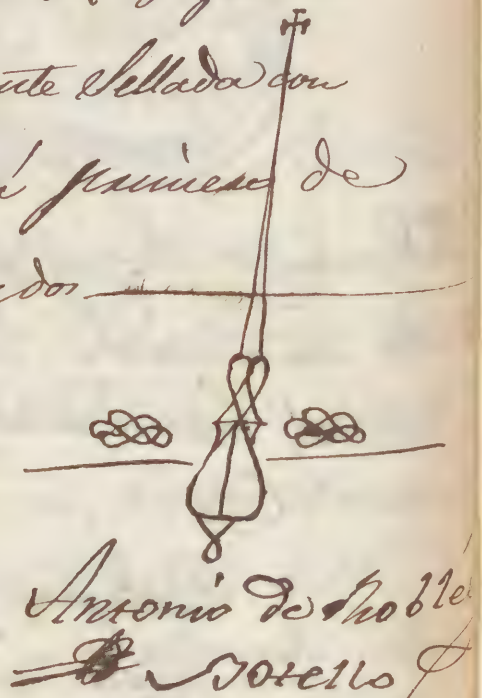 nte Sellada con
á primero de
dos
Antonio de Roble
Sotello